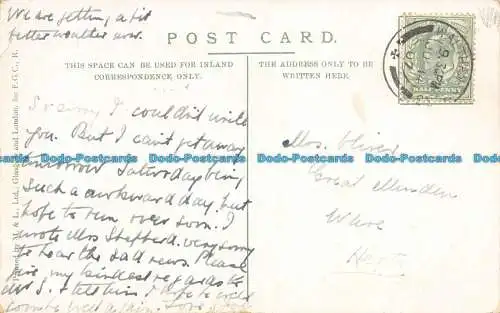 We are getting a bit
better weather now.
POST CARD.
THIS SPACE CAN BE USED FOR INLAND
CORRESPONDENCE ONLY.
THE ADDRESS ONLY TO BE
WRITTEN HERE.
So sorry I couldn't until
you. But I can't get away
tomorrow Saturday being
such a awkward day. but
hope to run over soon. I
wrote Mrs Shepherd. very sorry
to hear the sad news. Please
give my kindest regards to
Mr S. & tell him I hope to
Love
Mrs. Oliver
Great Munden
Ware
Herts
HALFPENNY
Printed by M. & L. Ltd., Glasgow and London, for F.G.C., H.
Dodo-Postcards Dodo-Postcards Dodo-Postcards Dodo-Postcards